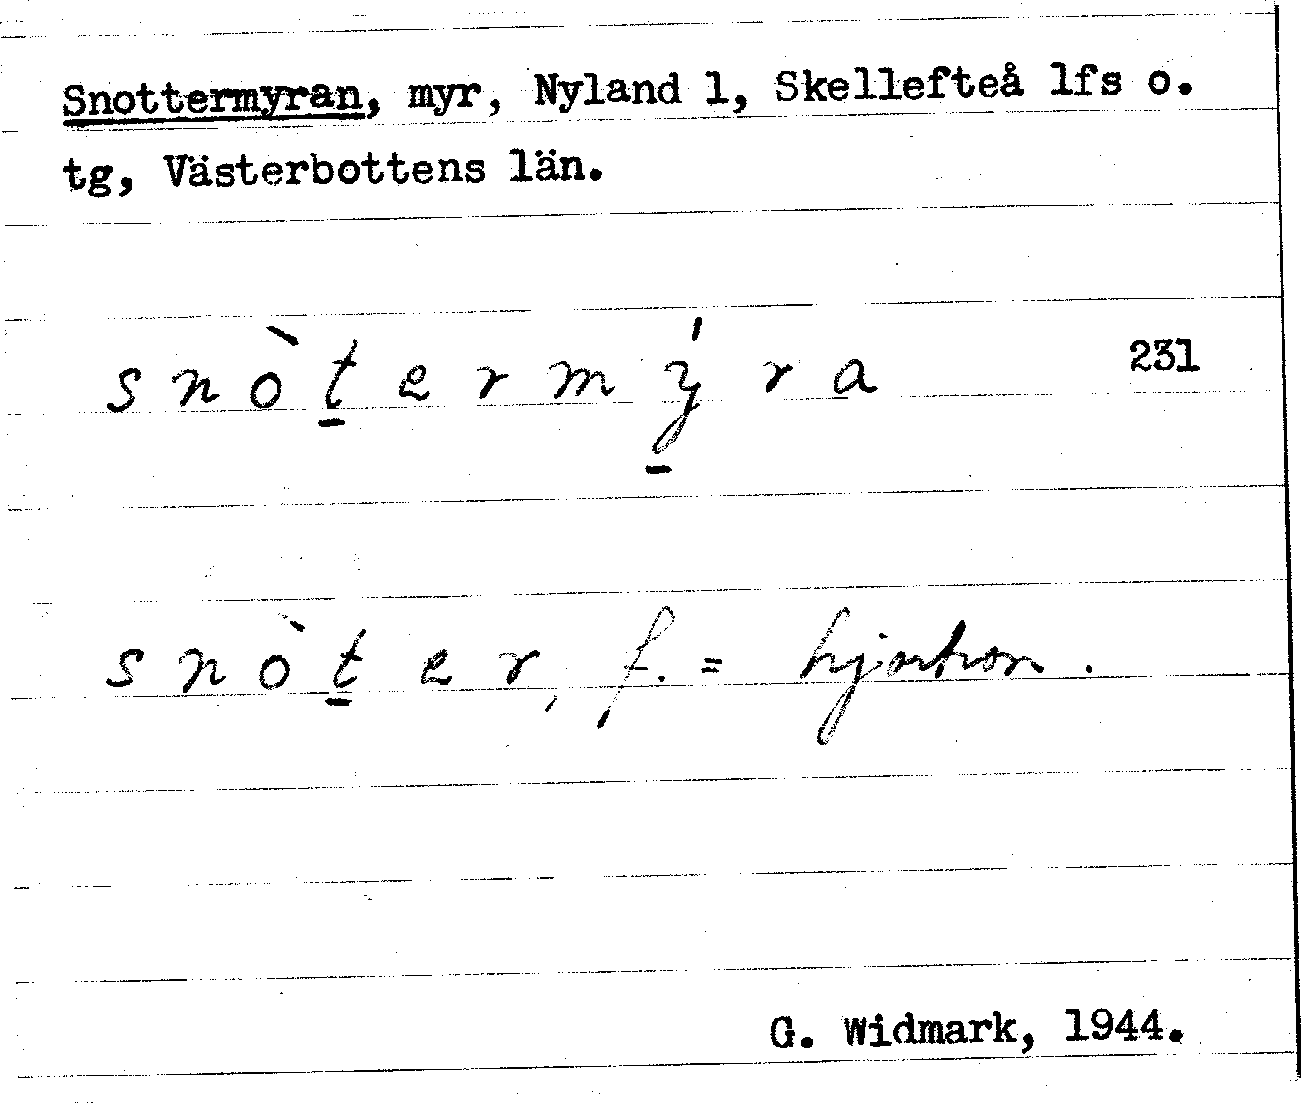 Snottermyran, myr, Nyland 1, Skellefteå lfs o.
tg, Västerbottens län.
snòt̠ermý̠ra 231
snòt̠er, f. = hjortron.
G. Widmark, 1944.